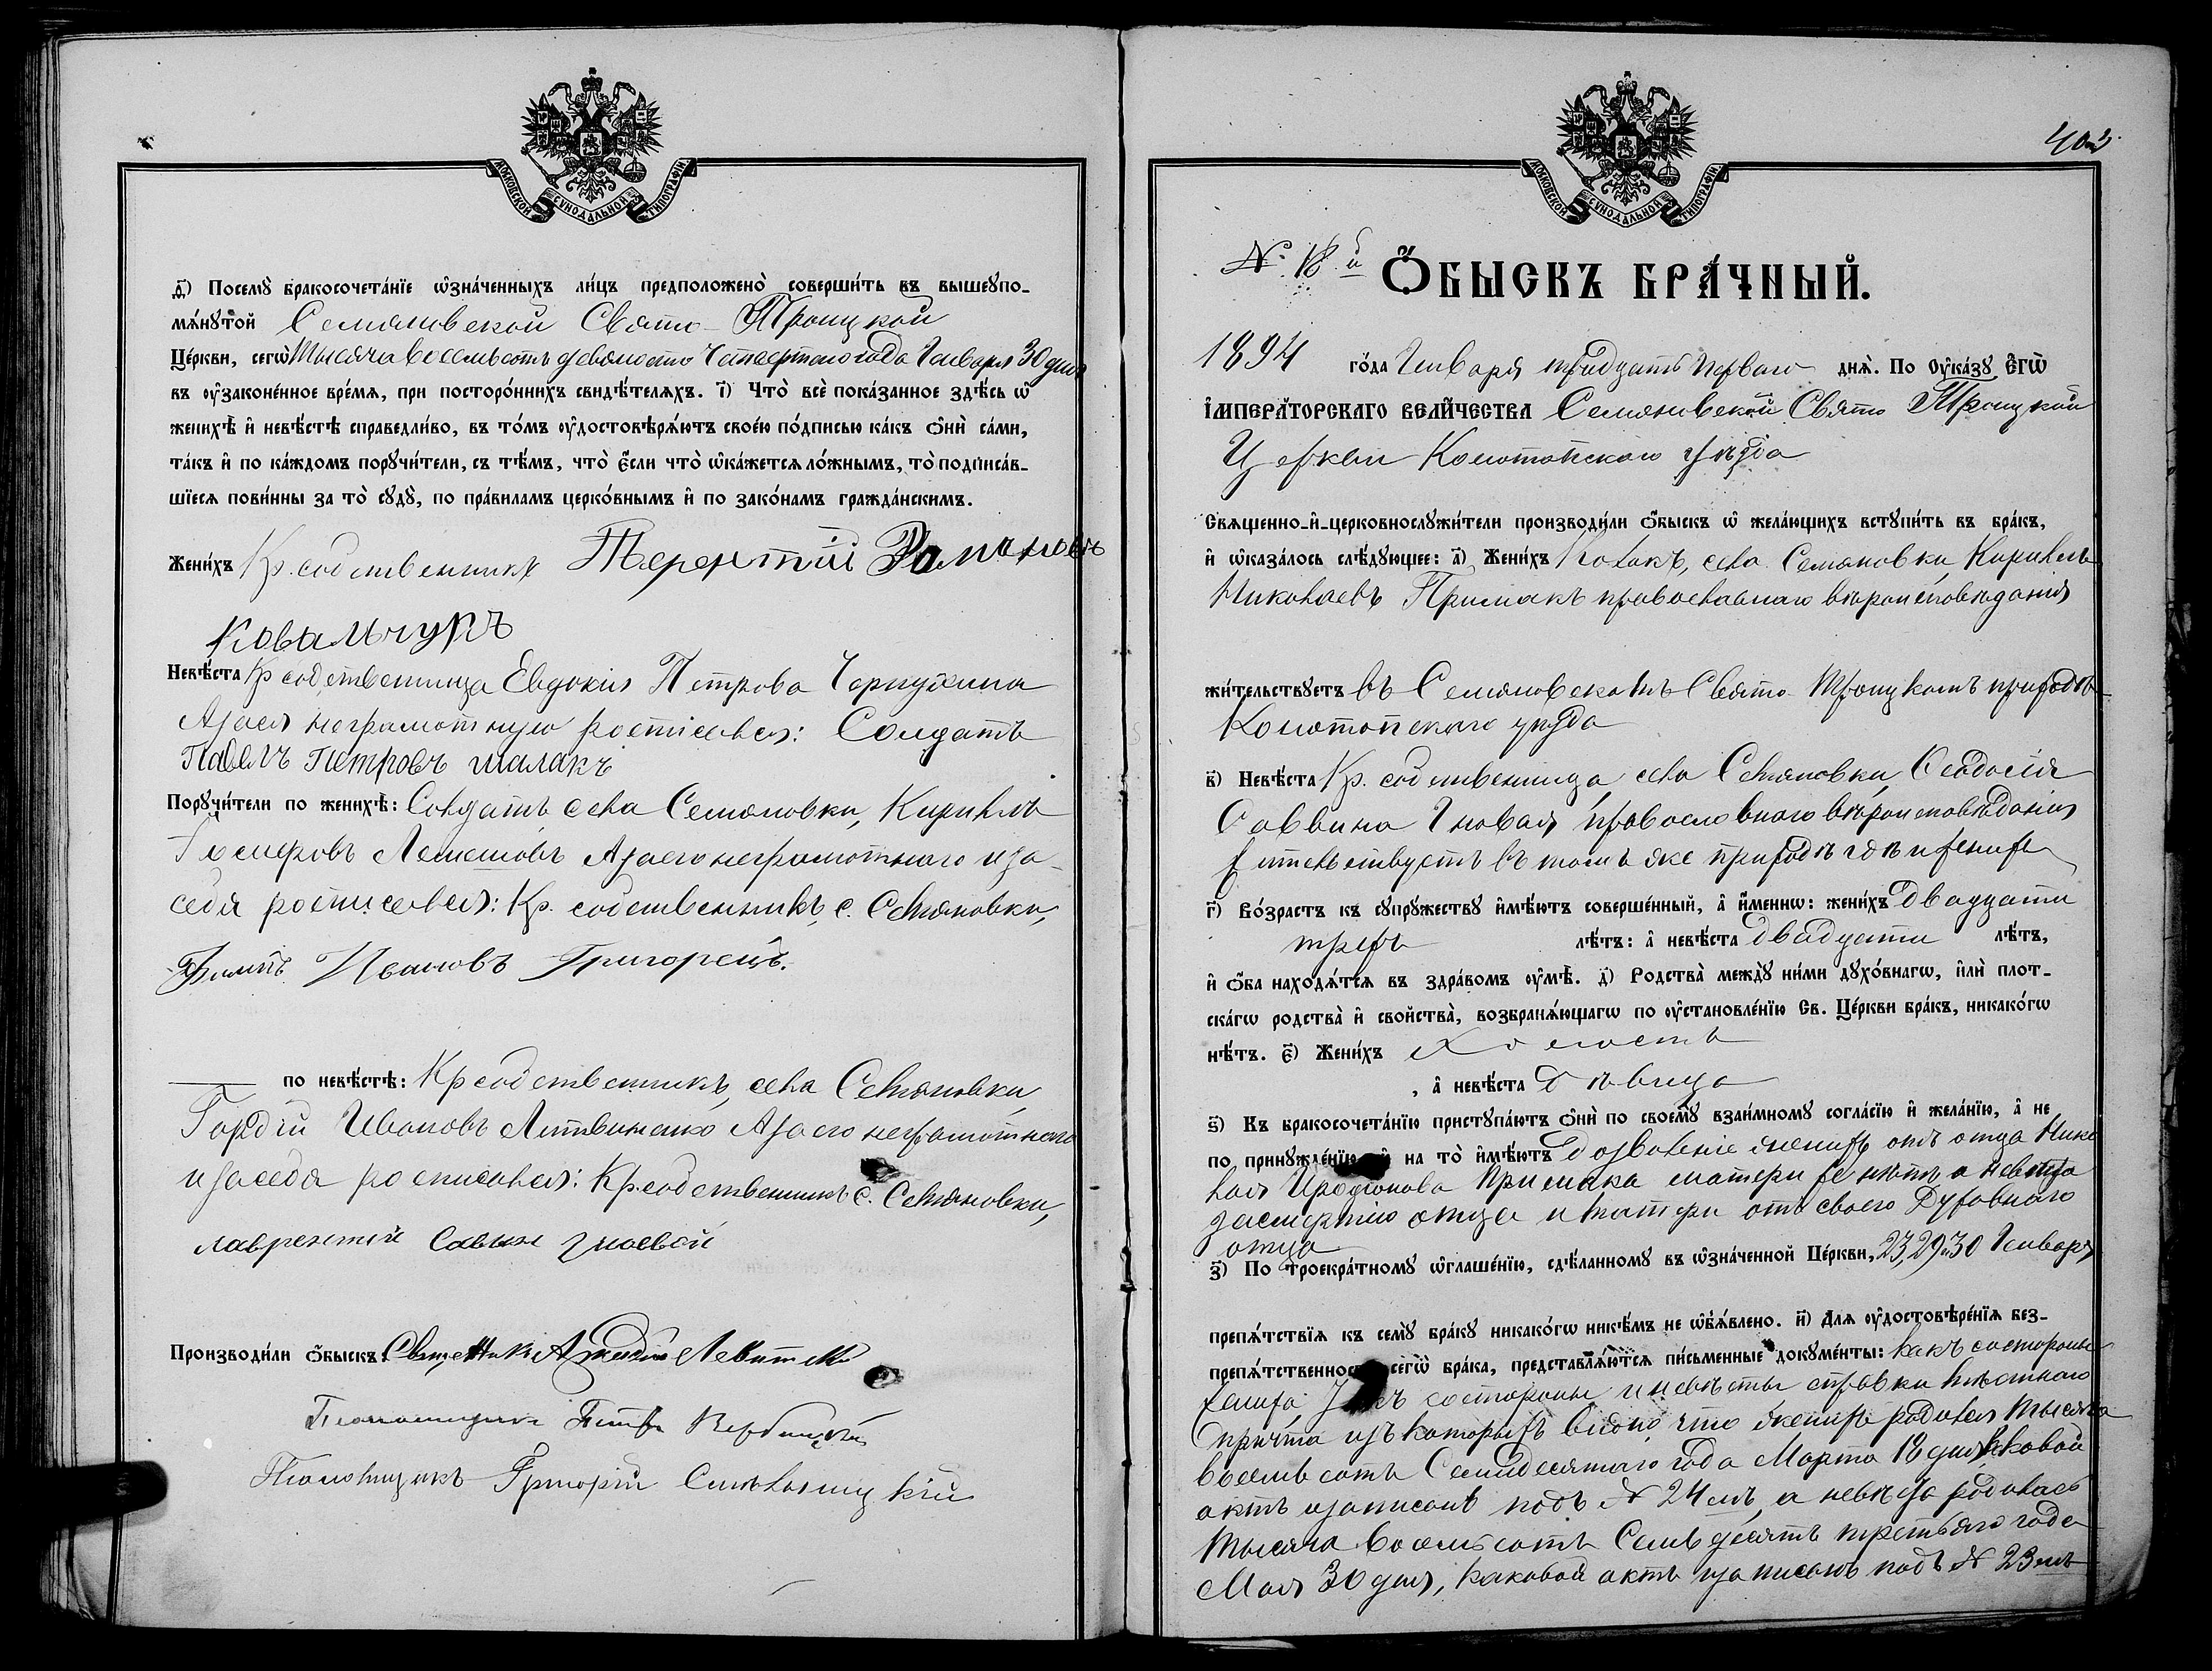 МОСКОВСКОЙ СѴНОДАЛЬНОЙ ТИПОГРАФІИ
д҃) Посемꙋ̀ бракосочета́нїе ѡ҆зна́ченныхъ ли́цъ предположено̀ соверши́ть въ вышеꙋпо-
мѧ́нꙋтой Семяновской Свято-Троицкой
Це́ркви, сегѡ̀ Тысяча восемьсотъ девяносто четвертаго года Января 30 дня
въ ᲂу҆законе́нное вре́мѧ, при посторо́ннихъ свидѣ́телѧхъ. і҃) Что̀ всѐ пока́занное здѣ́сь ѡ҆
женихѣ̀ и҆ невѣ́стѣ справедли́во, въ то́мъ ᲂу҆достовѣрѧ́ютъ свое́ю по́дписью ка́къ ѻ҆нѝ са́ми,
та́къ и҆ по ка́ждомъ порꙋчи́тели, съ тѣ́мъ, что̀ є҆́сли что̀ ѡ҆ка́жетсѧ ло́жнымъ, то̀ подписа́в-
шїесѧ пови́нны за то̀ сꙋдꙋ̀, по пра́виламъ церко́внымъ и҆ по зако́намъ гражда́нскимъ.
Жени́хъ Кр. собственникъ Терентій Романовъ
Ковальчукъ
Невѣ́ста Кр собственница Евдокія Петрова
А за ея неграмотную росписался: Солдатъ
Павелъ Петровъ
Порꙋчи́тели по женихѣ̀: Солдатъ села Семяновки, Кирилъ
А за его неграмотнаго и за
себя росписался: Кр. собственникъ с. Семяновки,
Ивановъ Григорецъ.
по невѣ́стѣ: Кр собственникъ, села Семяновки,
Гордій Ивановъ Литвиненко А за его неграмотнаго
и за себя росписался: Кр. собственникъ с. Семяновки,
лаврентий Савин гноевой
Производи́ли ѻ҆́быскъ: Священникъ Левитскій
Псаломщикъ Петръ Вербицкій
Псаломщикъ Григорій
403
МОСКОВСКОЙ СѴНОДАЛЬНОЙ ТИПОГРАФІИ
№ 18й
Ѻ҆БЫСКЪ БРА́ЧНЫЙ.
1894 го́да Января тридцать перваго днѧ̀. По Оу҆ка́зꙋ Є҆гѡ̀
І҆мпера́торскагѡ Вели́чества Семяновской Свято Троицкой
Церкви Конотопскаго уѣзда
Свѧщенно-и҆-церковнослꙋжи́тели производи́ли ѻ҆́быскъ ѡ҆ жела́ющихъ встꙋпи́ть въ бра́къ,
и҆ ѡ҆каза́лось слѣ́дꙋющее: а҃) Жени́хъ Козакъ, села Семяновки, Кирилъ
Николаевъ Примакъ православнаго вѣроисповѣданія
жи́тельствꙋетъ въ Семяновскомъ Свято-Троицкомъ приходѣ
Конотопскаго уѣзда
в҃) Невѣ́ста Кр. собственница, села Семяновки, Феодосія
Саввина Гновая православнаго вѣроисповѣданія
жительствуетъ въ томъ же приходѣ гдѣ и женихъ
г҃) Во́зрастъ къ сꙋпрꙋ́жествꙋ и҆мѣ́ютъ соверше́нный, а҆ и҆́меннѡ: жени́хъ двадцати
трехъ лѣ́тъ: а҆ невѣ́ста двадцати лѣ́тъ,
и҆ ѻ҆́ба нахо́дѧтсѧ въ здра́вомъ ᲂу҆мѣ̀. д҃) Родства̀ междꙋ̀ ни́ми дꙋхо́внагѡ, и҆лѝ плот-
ска́гѡ родства̀ и҆ сво́йства̀, возбранѧ́ющагѡ по ᲂу҆становле́нїю Св. Це́ркви бра́къ, никако́гѡ
нѣ́тъ. є҃) Жени́хъ холостъ
, а҆ невѣ́ста дѣвица
ѕ҃) Къ бракосочета́нїю пристꙋпа́ютъ ѻ҆нѝ по своемꙋ̀ взаи́мномꙋ согла́сїю и҆ жела́нїю, а҆ не
по принꙋжде́нїю и҆ на то̀ и҆мѣ́ютъ дозволеніе женихъ отъ отца Нико
лая Иродіонова Примака матери же нѣтъ а невѣста
за смертію отца и матери отъ своего Духовнаго
отца
з҃) По троекра́тномꙋ ѡ҆глаше́нїю, сдѣ́ланномꙋ въ ѡ҆зна́ченной Це́ркви, 23, 29 30 Января
препѧ́тствїѧ къ семꙋ̀ бра́кꙋ никако́гѡ никѣ́мъ не ѡ҆б̾ѧ́влено. и҃) Длѧ ᲂу҆достовѣре́нїѧ без-
препѧ́тственнос сегѡ̀ бра́ка, представлѧ́ютсѧ пи́сьменные докꙋме́нты: какъ со стороны
жениха со стороны и невѣсты справки мѣстнаго
причта изъ которыхъ видно что женихъ родился тысяча
восемьсотъ Семидесятаго года Марта 18 дня, каковой
актъ и записанъ подъ № 24мъ, а невѣста родилась
Тысяча восемьсотъ Семьдесятъ третьяго года
Мая 30 дня, каковой актъ и записанъ подъ № 23мъ